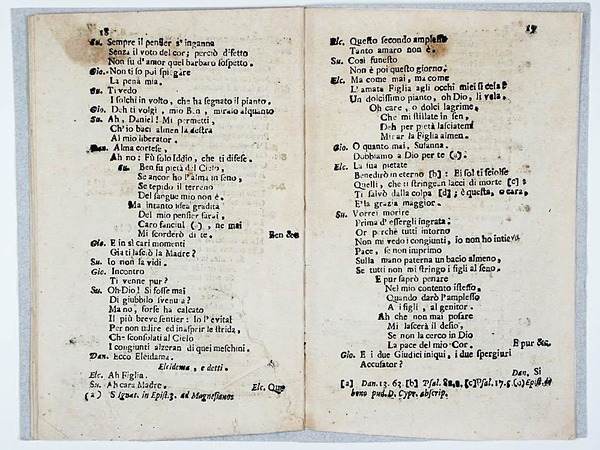 18
Su. Sempre il pensier s'inganna
Senza il voto del cor; perciò difetto
Non fu d'amor quel barbaro sospetto.
Gio. Non ti so poi spiegare
La pena mia.
Su. Ti vedo
I solchi in volto, che ha segnato il pianto.
Gio. Deh ti volgi, mio B.n, miralo alquanto
Su. Ah, Daniel! Mi permetti,
Ch'io baci almen la destra
Al mio liberator.
Dan. Alma cortese,
Ah no: Fù solo Iddio, che ti difese.
Su. Ben fu pietà del Cielo,
Se ancor ho l'alma in seno,
Se tepido il terreno
Del sangue mio non è.
Ma intanto idea gradita
Del mio pensier sarai.
Caro fanciul (a), ne mai
Mi scorderò di te. Ben &c.
Gio. E in sì cari momenti
Gia ti lasciò la Madre?
Su. Io non la vidi.
Gio. Incontro
Ti venne pur?
Su. Oh Dio! Si fosse mai
Di giubbilo svenuta?
Ma no, forse ha calcato
Il più breve sentier: Io l'evitai
Per non udire ed inasprir le strida,
Che sconsolati al Cielo
I congiunti alzeran di quei meschini.
Dan. Ecco Elcidama.
Elcidama, e detti.
Elc. Ah Figlia.
Su. Ah cara Madre. Elc. Que
(a) S Ignat. in Epist. 3. ad Magnesianos
19
Elc. Questo secondo amplesso
Tanto amaro non è.
Su. Così funesto
Non è poi questo giorno.
Elc. Ma come mai, ma come
L'amata Figlia agli occhi miei si cela?
Un dolcissimo pianto, oh Dio, li vela.
Oh care, o dolci lagrime,
Che mi stillate in sen,
Deh per pietà lasciatemi
Mirar la Figlia almen.
Gio. O quanto mai, Susanna.
Dobbiamo a Dio per te (a).
Elc. La sua pietate
Benedirò in eterno [b]: Ei sol ti sciolse
Quelli, che ti stringean lacci di morte [c]:
Ti salvò dalla colpa [d]; è questa, o cara,
E' la grazia maggior.
Su. Vorrei morire
Prima d'essergli ingrata:
Or perchè tutti intorno
Non mi vedo i congiunti, io non ho intiera
Pace, se non inprimo
Sulla mano paterna un bacio almeno,
Se tutti non mi stringo i figli al seno.
E pur saprò penare
Nel mio contento istesso,
Quando darò l'amplesso
A i figli, al genitor.
Ah che non mai posare
Mi lascerà il desio,
Se non la cerco in Dio
La pace del mio Cor. E pur &c.
Gio. E i due Giudici iniqui, i due spergiuri
Accusator?
Dan. Si
[a] Dan. 13. 63. [b] Psal. [c] Psal. 17. 5. Epist. de
bono pud. D. Cypr. abscrip.